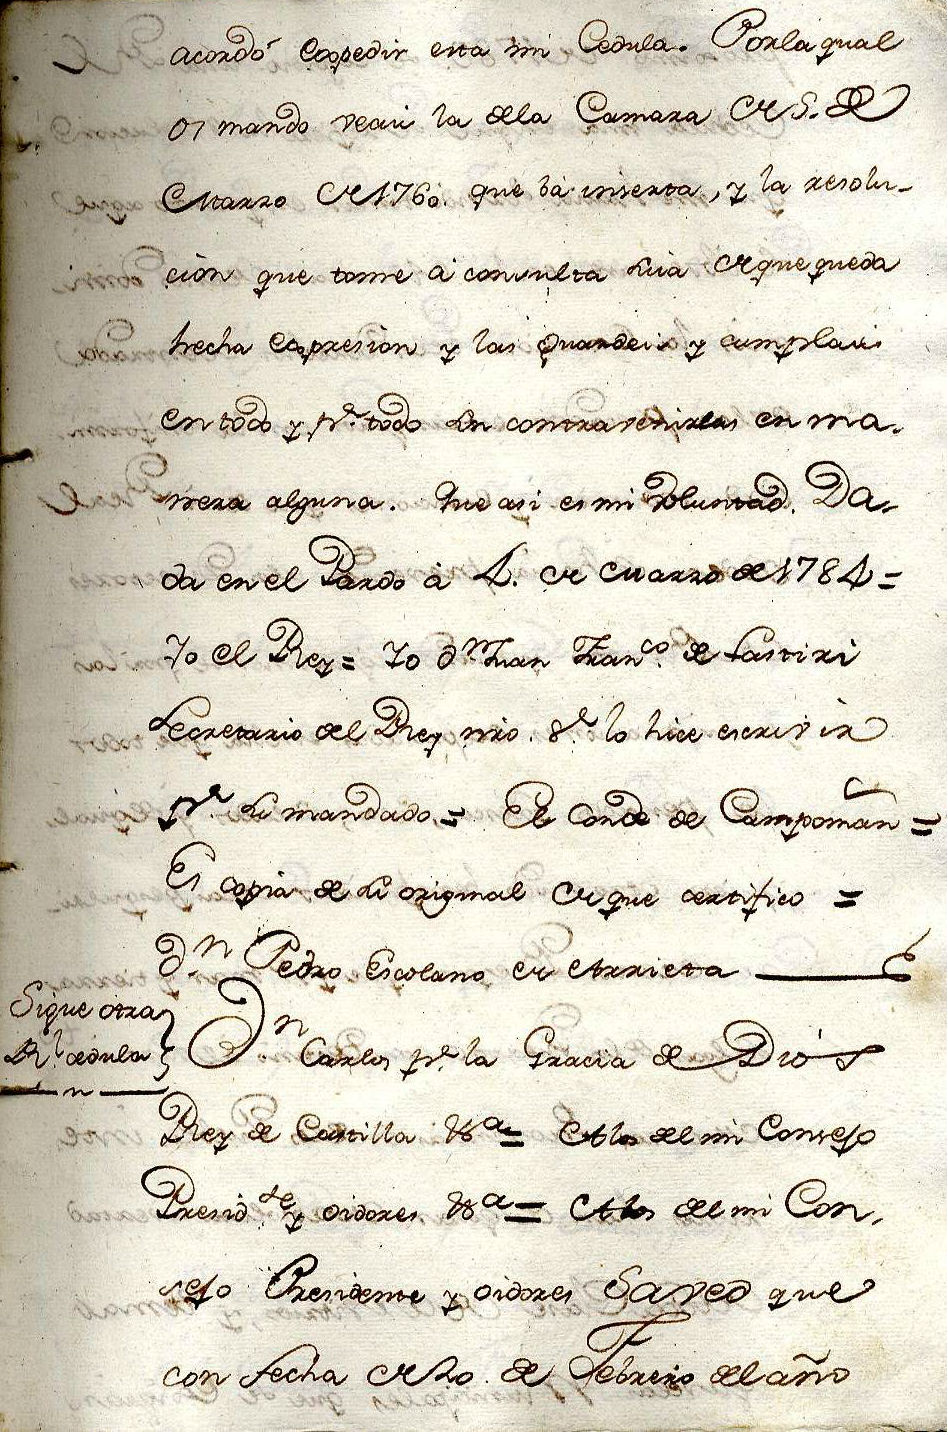 acordó expedir esta mi Cedula. Por la qual
os mando veais la de la Camara de 5. de
Marzo de 1760. que bá inserta, y la resolu-
cion que tome á consulta suia de que queda
hecha expresion y las guardeis y cumplais
en todo y pr. todo sin contravenirlas en ma-
nera alguna. Que asi es mi voluntad. Da-
da en el Pardo á 4. de Marzo de 1784=
Yo el Rey= Yo dn Juan Franco. de Lastiri
Secretario del Rey nro. Sr. lo hice escrivir
pr. su mandado= El Conde de Campomān =
Es copia de su original de que certifico =
dn. Pedro Escolano de Arrieta
Sigue otra
Rl. cedula
Dn Carlos pr. la Gracia de Dios
Rey de Castilla &a= A los del mi Consejo
Presidte y oidores &a= A los del mi Con-
sejo Presidente y oidores Saved que
con fecha de 20 de Febrero del año